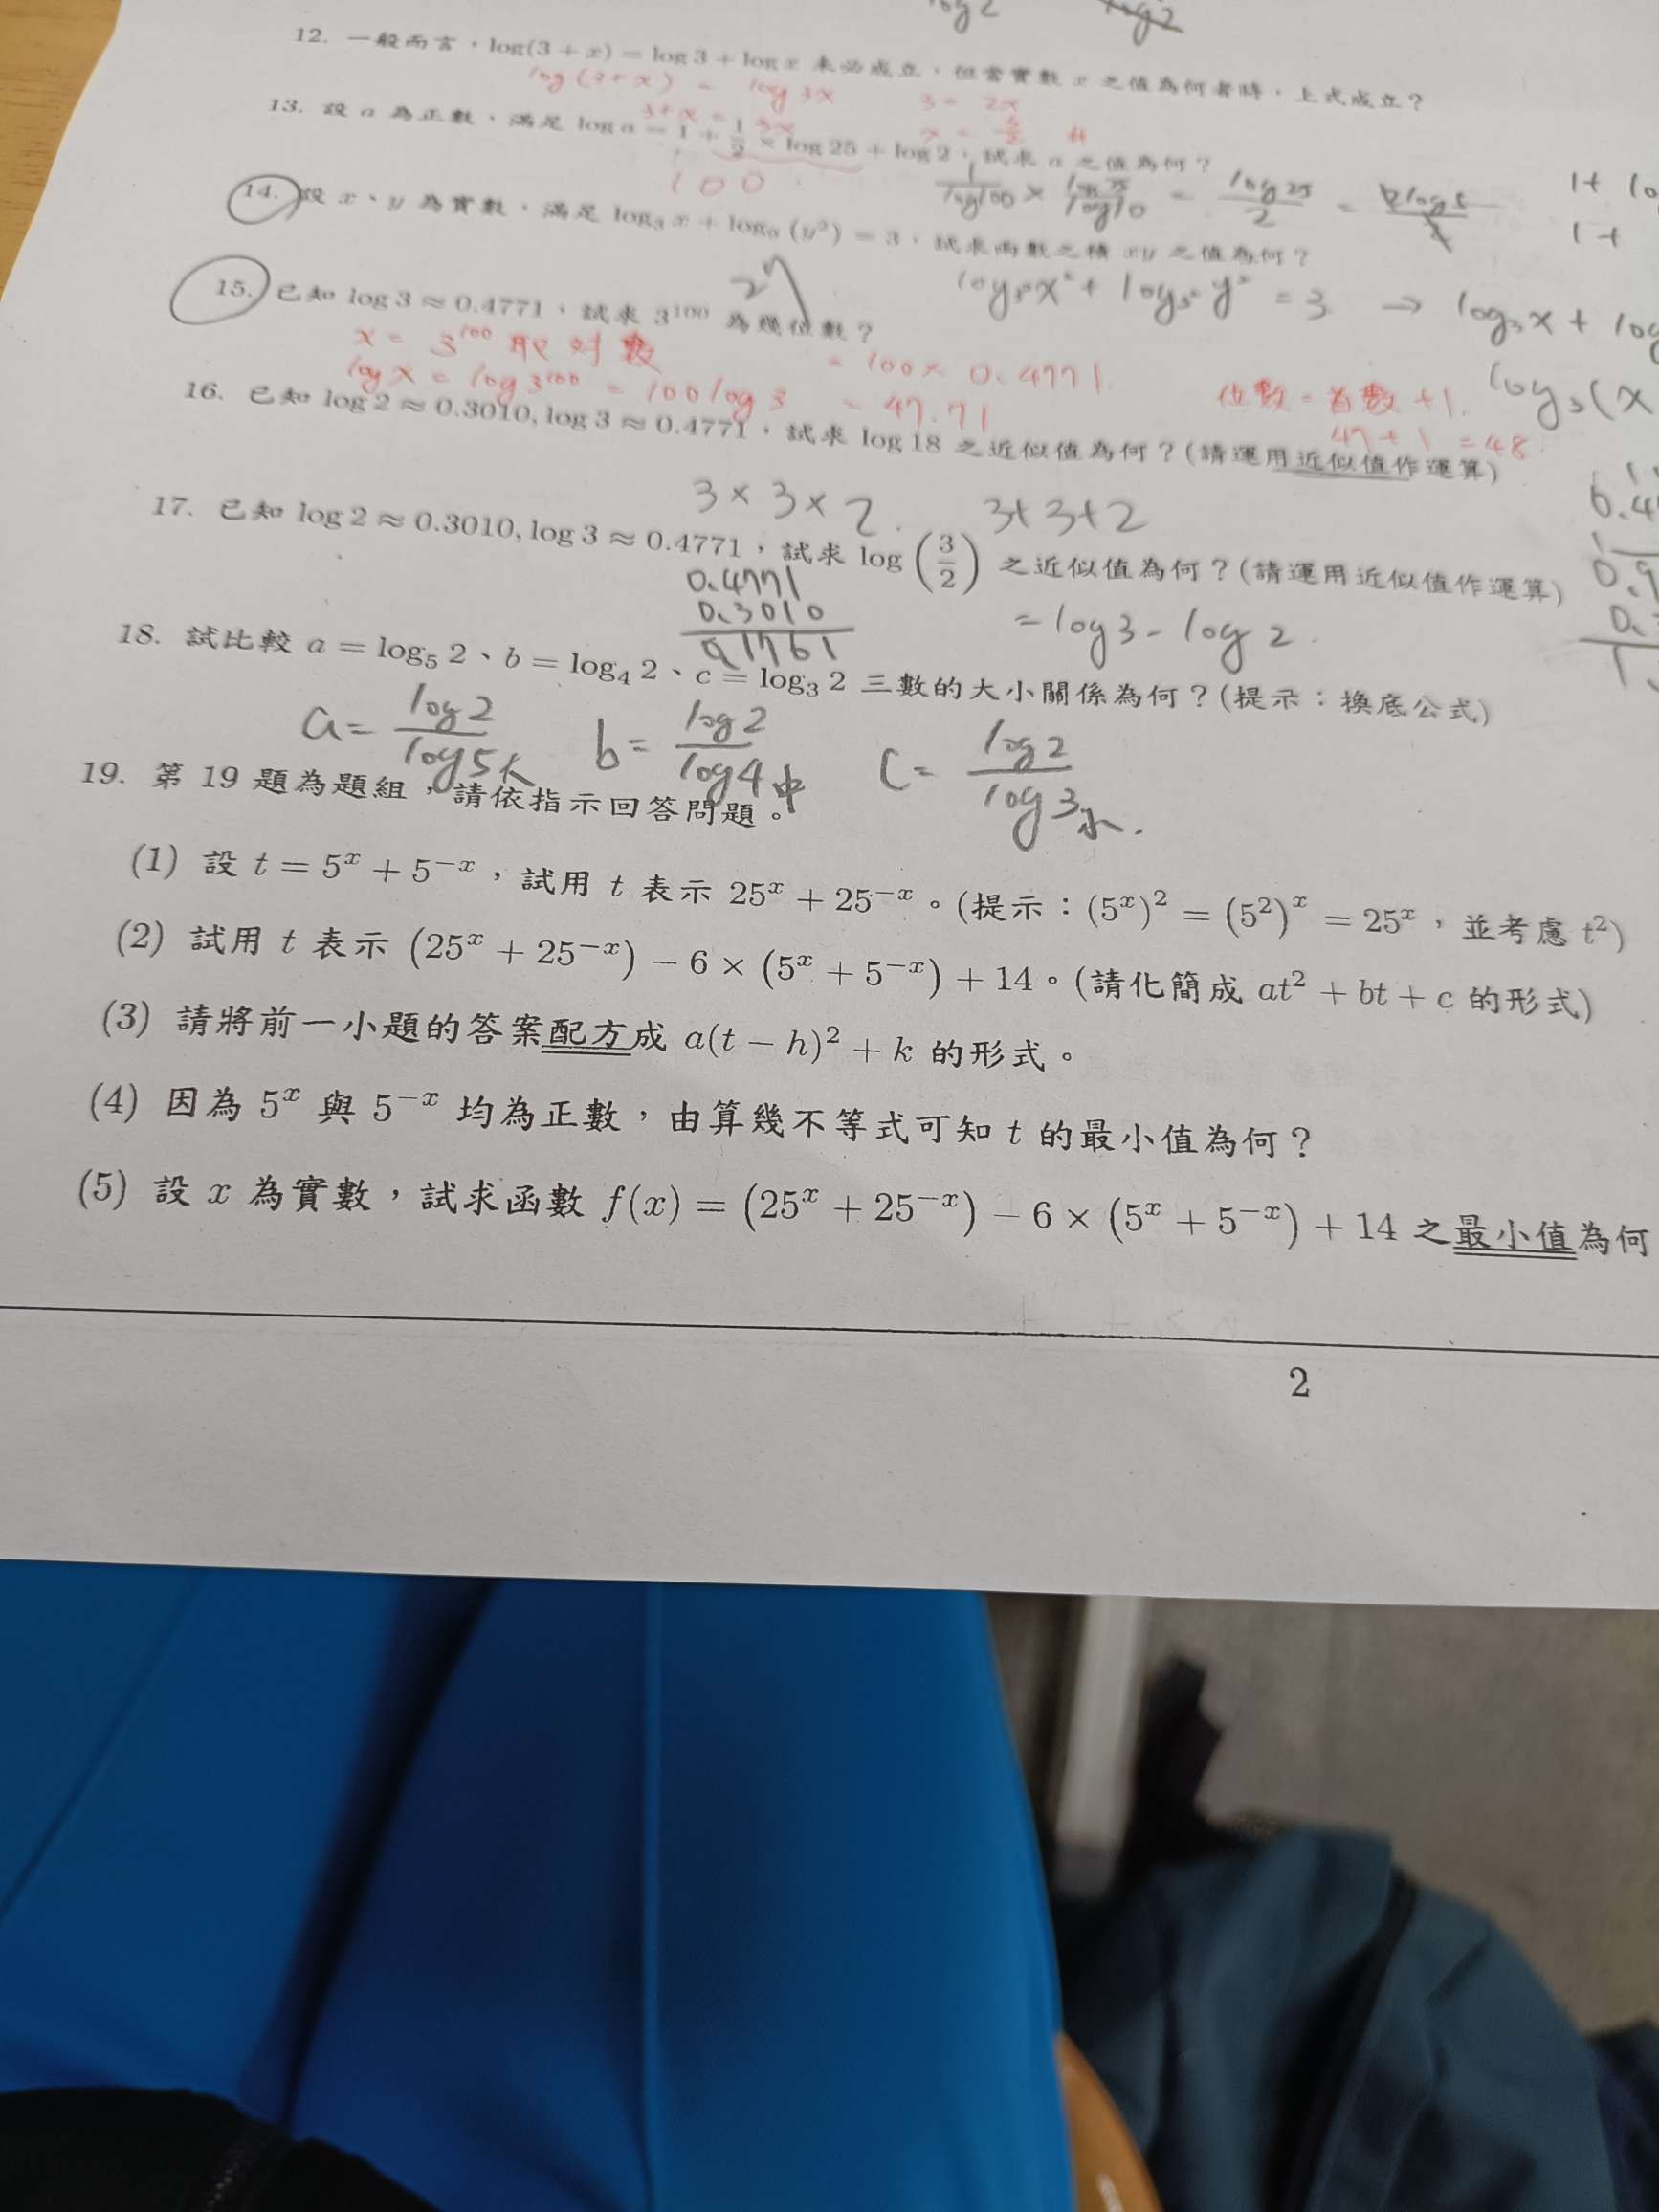 log2 log2
12. 一般而言，log(3 + x) = log 3 + log x 未必成立，但當實數 x 之值為何者時，上式成立？
log(3+x) = log 3x 3 = 2x
3+x = 3x x = 3/2 #
13. 設 a 為正數，滿足 log a = 1 + 1/2 × log 25 + log 2，試求 a 之值為何？
100 1/log100 × log25/log10 = log25/2 = 2log5/2 1+
14. 設 x、y 為實數，滿足 log₃ x + log₉ (y²) = 3，試求兩數之積 xy 之值為何？
1+
15. 已知 log 3 ≈ 0.4771，試求 3¹⁰⁰ 為幾位數？
→ log₃x +
x = 3¹⁰⁰ 取對數 = 100 × 0.4771
log x = log 3¹⁰⁰ = 100 log 3 = 47.71 位數 = 首數 + 1. log₃(x
47 + 1 = 48
16. 已知 log 2 ≈ 0.3010, log 3 ≈ 0.4771，試求 log 18 之近似值為何？(請運用近似值作運算)
3×3×2. 3+3+2
17. 已知 log 2 ≈ 0.3010, log 3 ≈ 0.4771，試求 log (3/2) 之近似值為何？(請運用近似值作運算)
0.4771
0.3010 = log3 - log2.
0.1761
18. 試比較 a = log₅ 2、b = log₄ 2、c = log₃ 2 三數的大小關係為何？(提示：換底公式)
a = log2/log5大 b = log2/log4中 c = log2/log3小.
19. 第 19 題為題組，請依指示回答問題。
(1) 設 t = 5ˣ + 5⁻ˣ，試用 t 表示 25ˣ + 25⁻ˣ。(提示：(5ˣ)² = (5²)ˣ = 25ˣ，並考慮 t²)
(2) 試用 t 表示 (25ˣ + 25⁻ˣ) − 6 × (5ˣ + 5⁻ˣ) + 14。(請化簡成 at² + bt + c 的形式)
(3) 請將前一小題的答案配方成 a(t − h)² + k 的形式。
(4) 因為 5ˣ 與 5⁻ˣ 均為正數，由算幾不等式可知 t 的最小值為何？
(5) 設 x 為實數，試求函數 f(x) = (25ˣ + 25⁻ˣ) − 6 × (5ˣ + 5⁻ˣ) + 14 之最小值為何
2